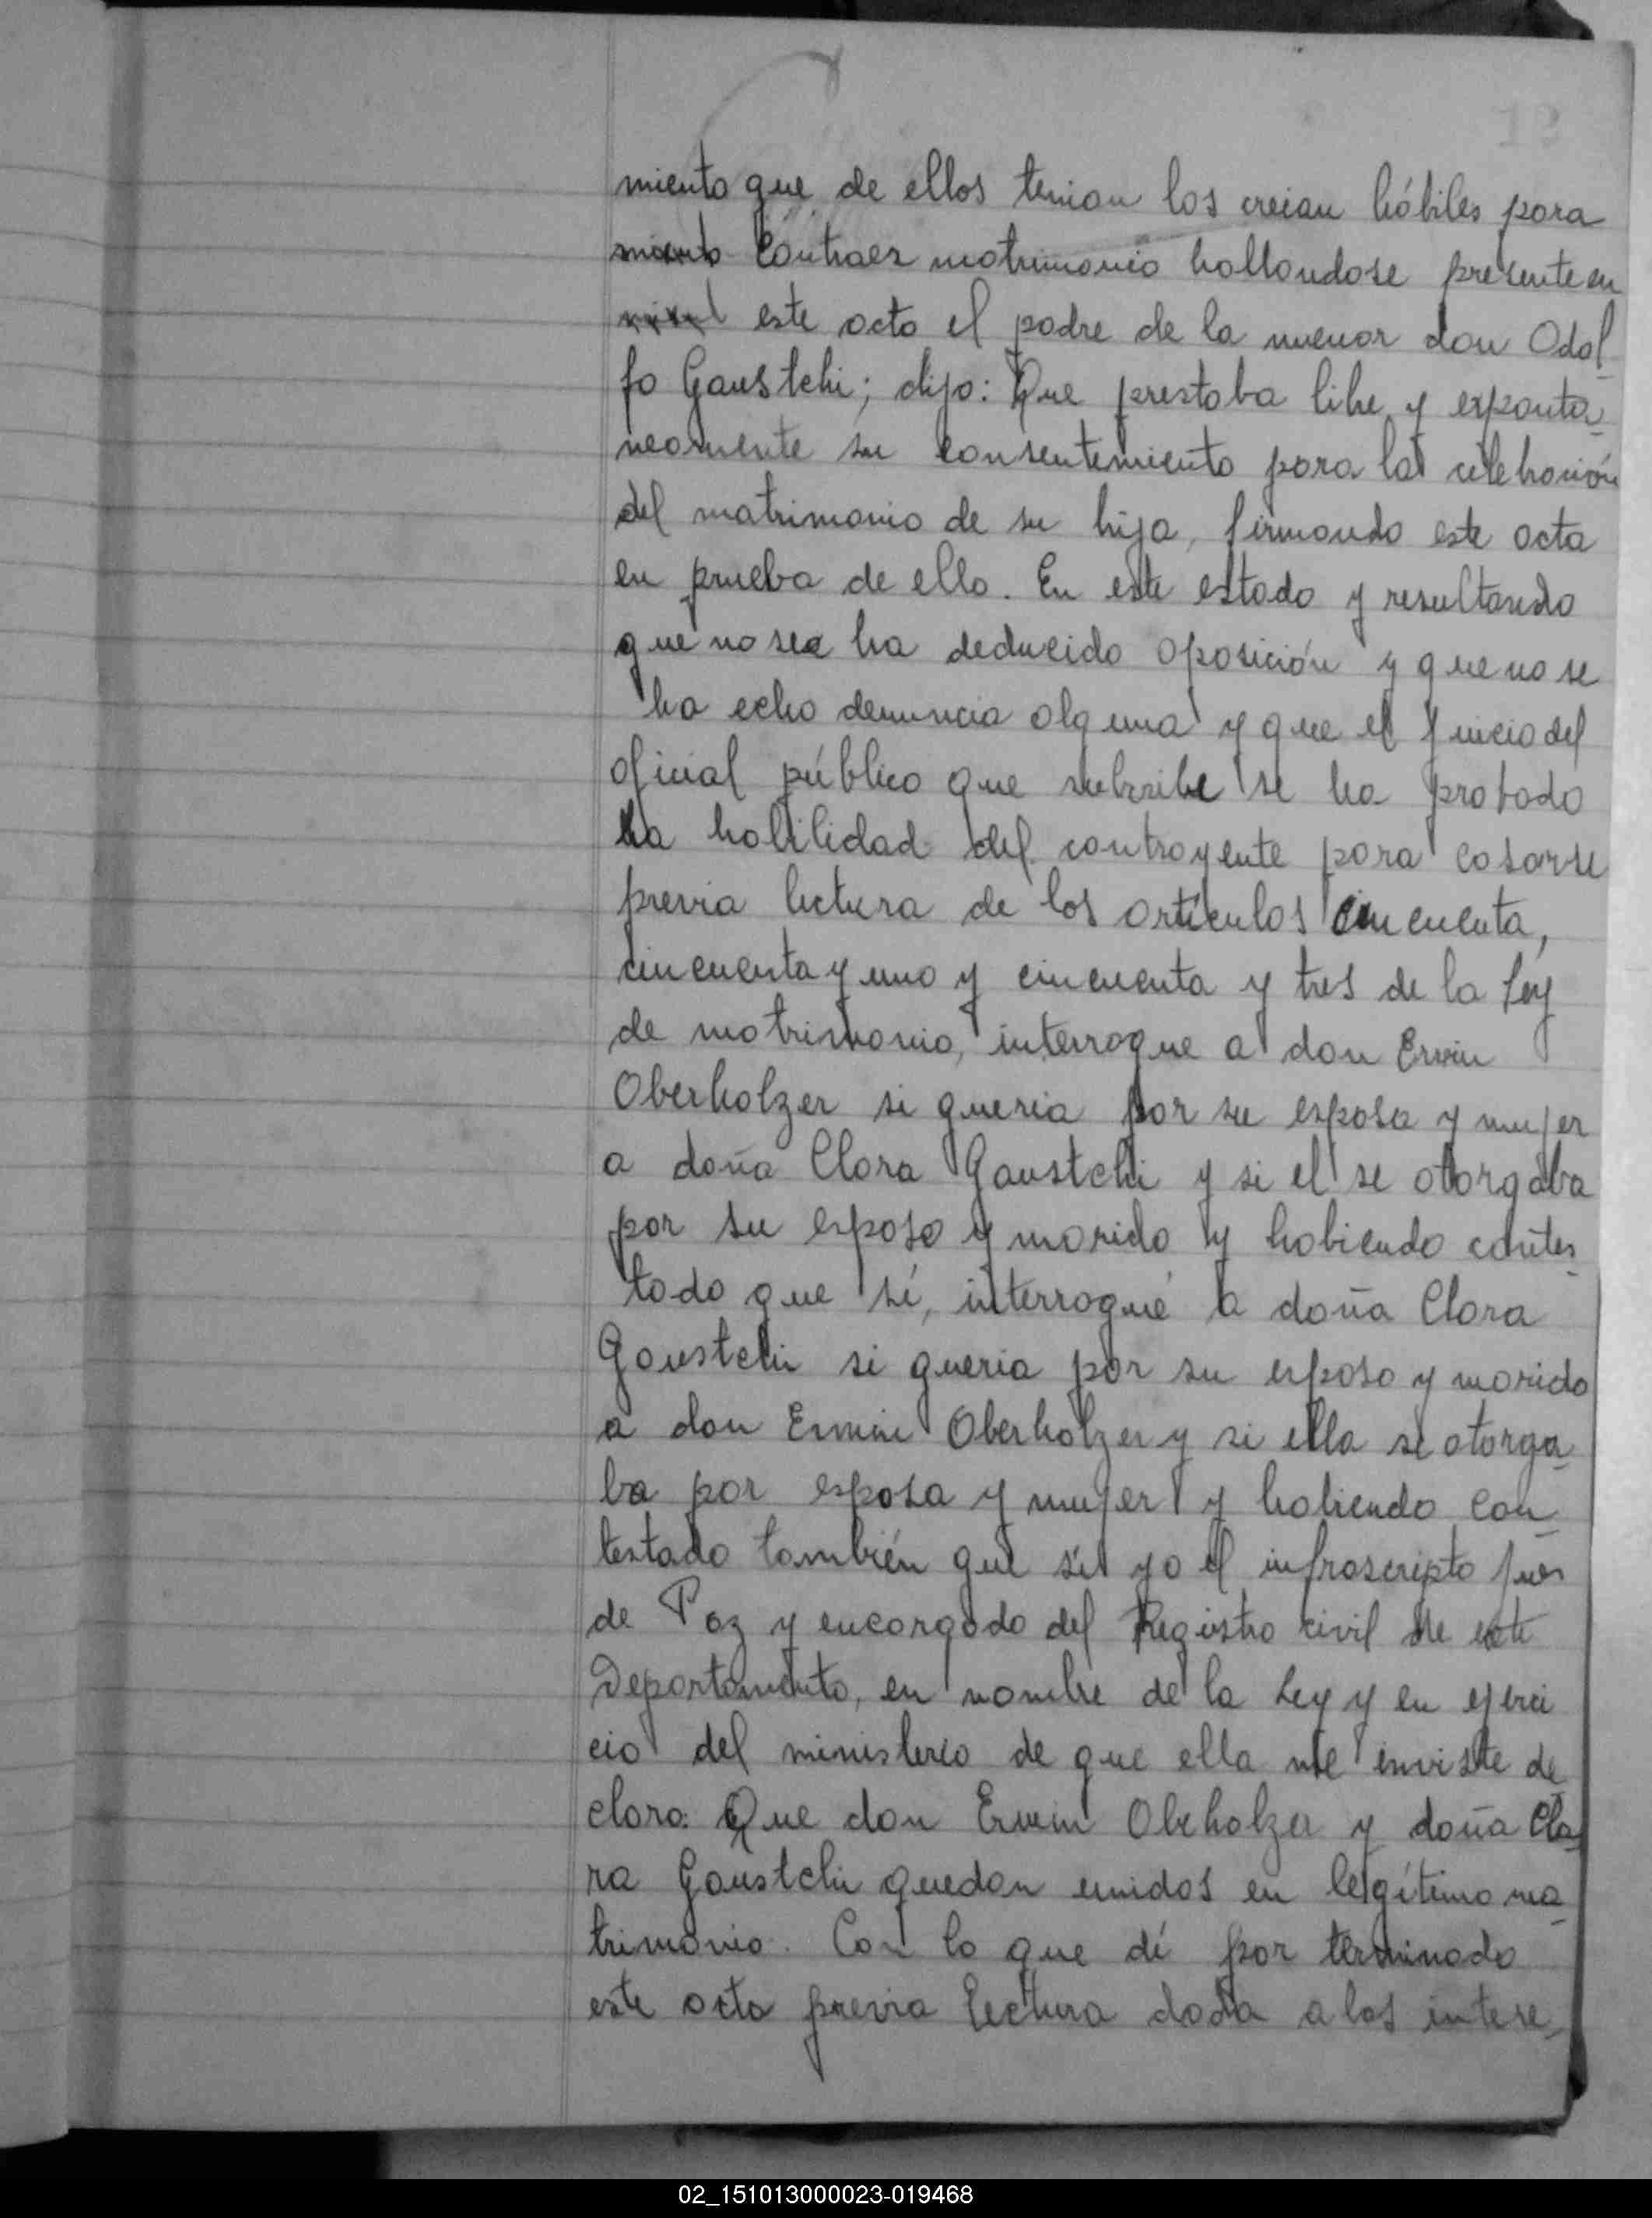 miento que de ellos tenian los creian hábiles para
miento contraer matrimonio hallandose presente en
este acto el padre de la menor don Odol-
fo Gaustchi; dijo: Que prestaba libre y exponta-
neamente su consentemiento para la celebración
del matrimonio de su hija, firmando este acta
en prueba de ello. En este estado y resultando
que no sea ha deducido oposición y que no se
ha echo denuncia alguna y que el juicio del
oficial público que subscribe se ha probado
la habilidad del contrayente para casarse
previa lectura de los artículos cincuenta,
cincuenta y uno y cincuenta y tres de la Ley
de matrimonio, interrogue a don Erwin
Oberholzer si queria por su esposa y mujer
a doña Clara Gaustchi y si el se otorgaba
por su esposo y marido y habiendo contes-
tado que sí, interrogué a doña Clara
Gaustchi si queria por su esposo y marido
a don Erwin Oberholzer y si ella se otorga-
ba por esposa y mujer y habiendo con-
testado también que sí yo el infrascripto Jues
de Paz y encargado del Registro civil de este
Departamento, en nombre de la Ley y en ejerci
cio del ministerio de que ella me inviste de-
claro: Que don Erwin Obeholzer y doña Cla-
ra Gaustchi quedan unidos en legítimo ma-
trimonio. Con lo que dí por terminado
este acto previa lectura dada a los intere-
02_151013000023-019468